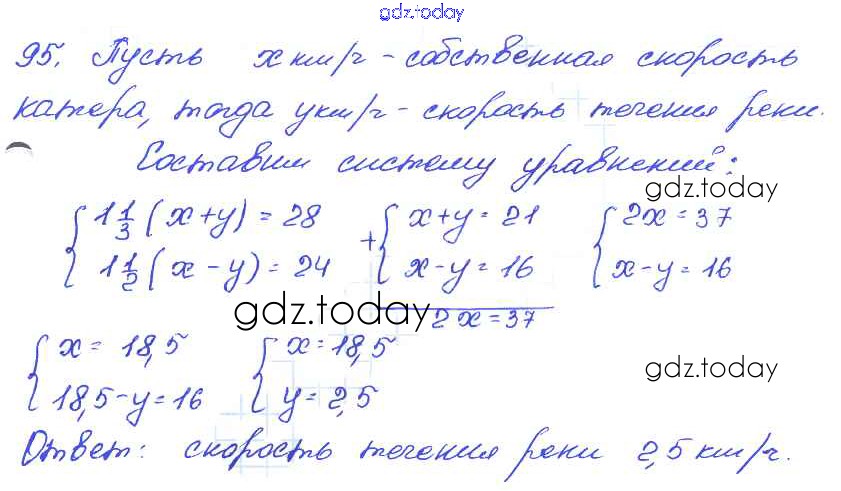 gdz.today
95. Пусть x км/ч - собственная скорость
катера, тогда y км/ч - скорость течения реки.
Составим систему уравнений:
gdz.today
{ 1 1/3 (x+y) = 28 + { x+y = 21 { 2x = 37
{ 1 1/2 (x-y) = 24 { x-y = 16 { x-y = 16
gdz.today 2x = 37
{ x = 18,5 { x = 18,5
gdz.today
{ 18,5-y = 16 { y = 2,5
Ответ: скорость течения реки 2,5 км/ч.